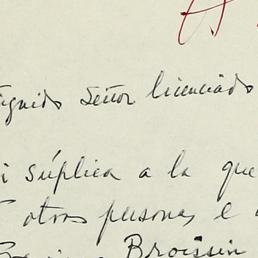 Señor licenciado
súplica a la que
otras personas e
Broissin